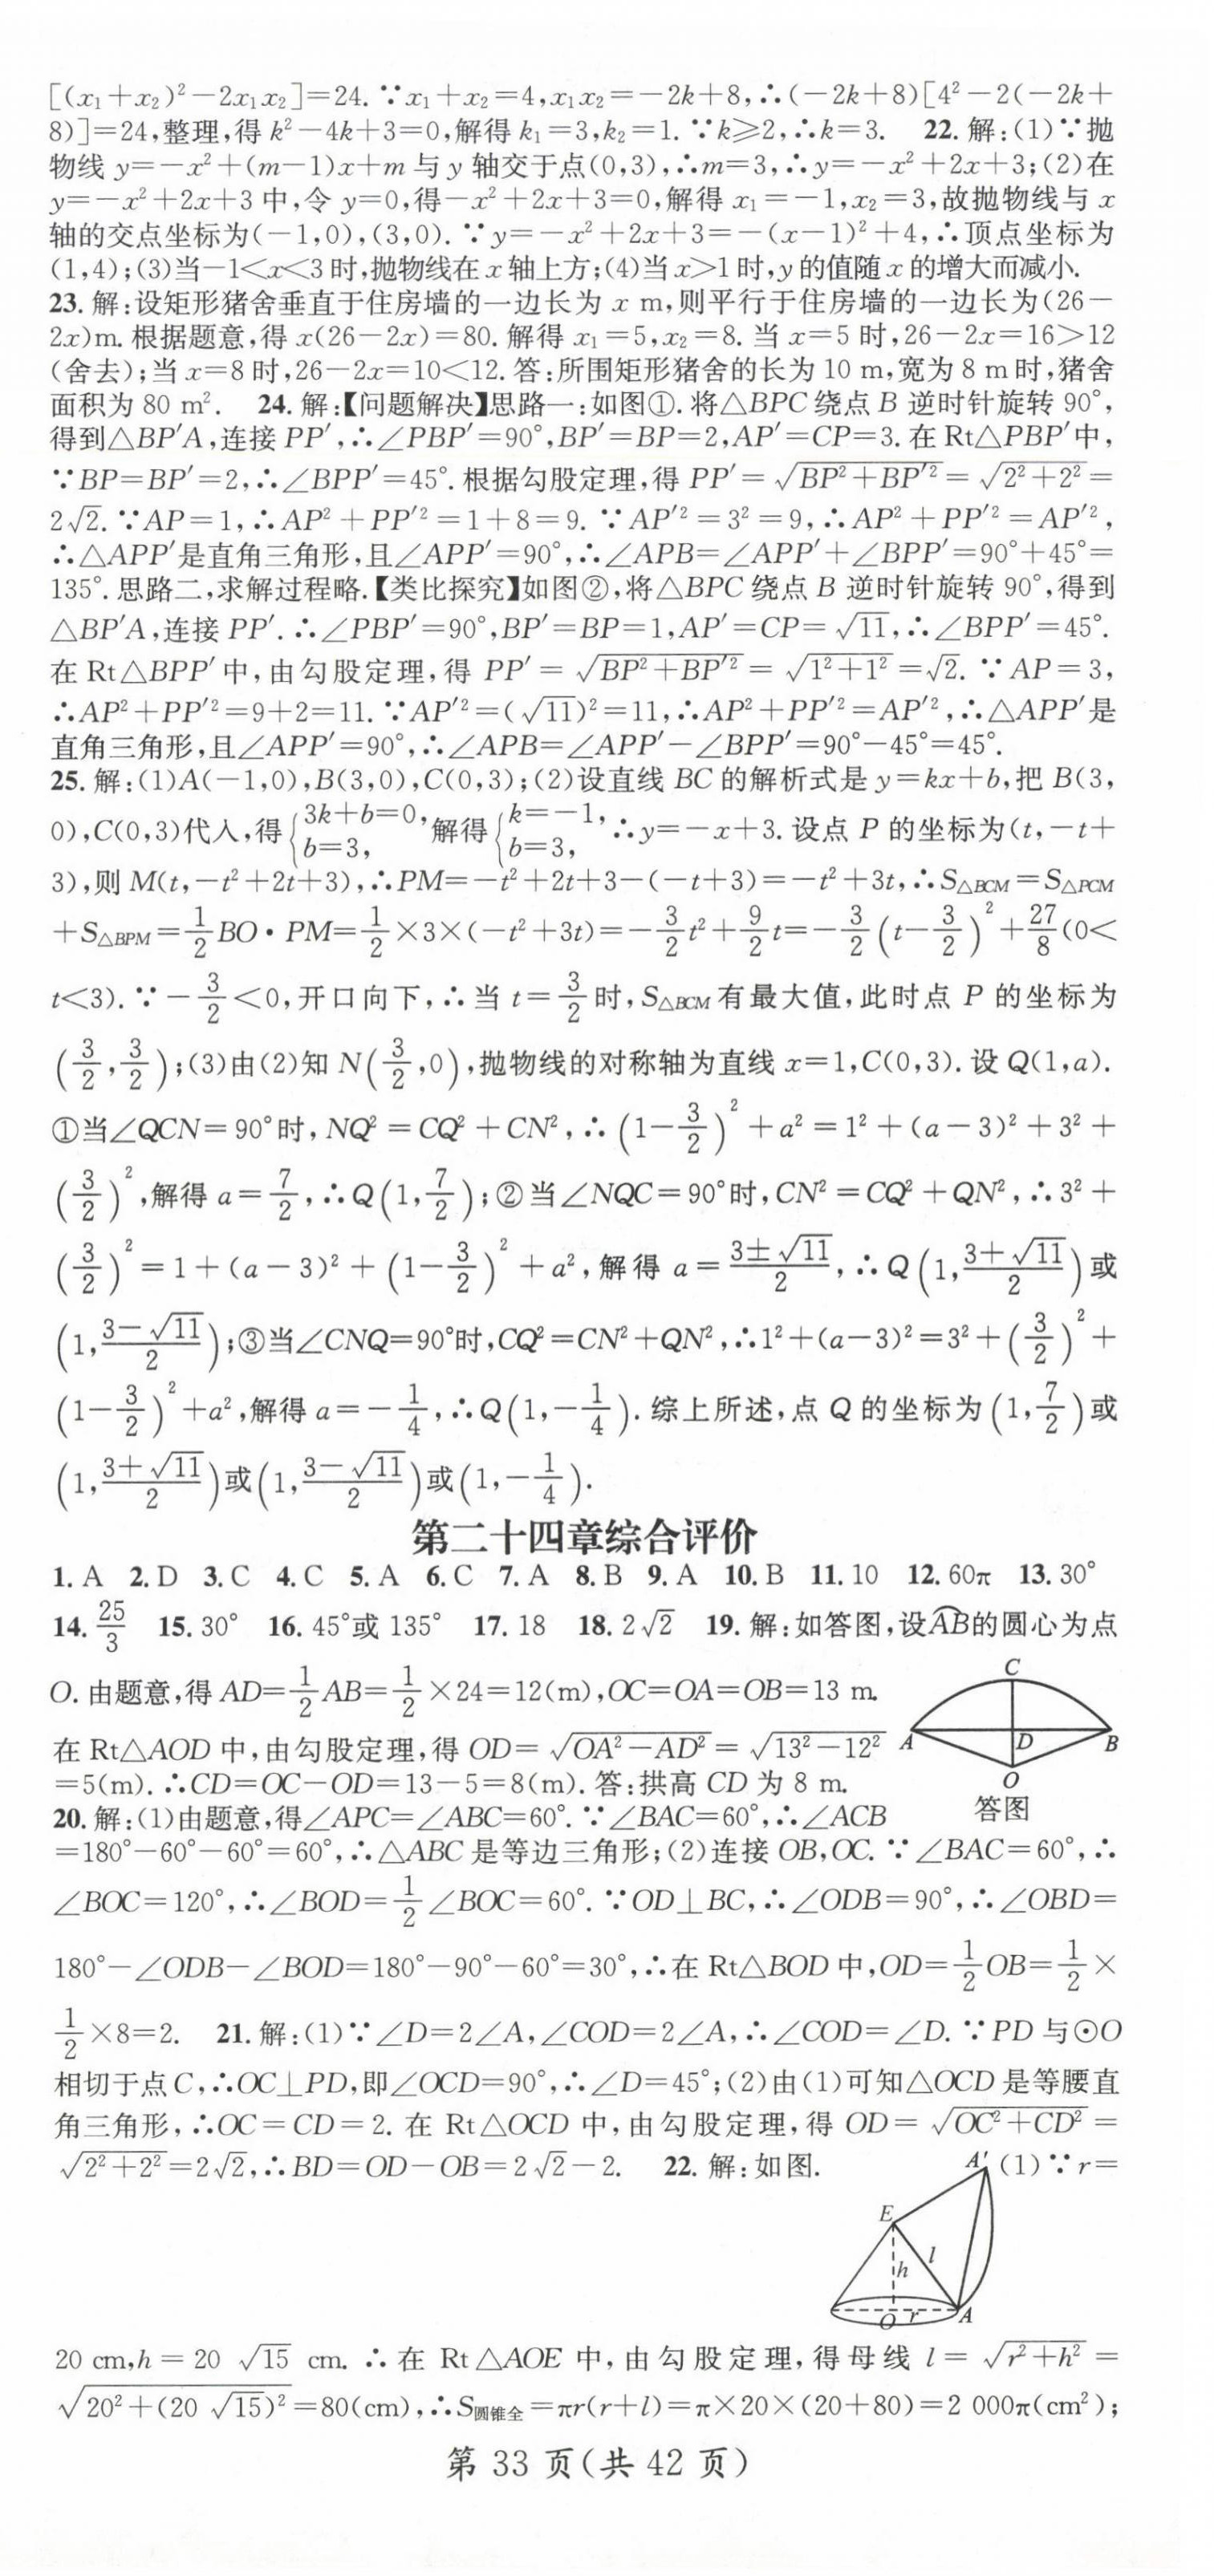 [(x₁+x₂)²-2x₁x₂]=24. ∵x₁+x₂=4,x₁x₂=-2k+8,∴(-2k+8)[4²-2(-2k+
8)]=24,整理,得 k²-4k+3=0,解得 k₁=3,k₂=1. ∵k≥2,∴k=3. 22. 解:(1)∵抛
物线 y=-x²+(m-1)x+m 与 y 轴交于点(0,3),∴m=3,∴y=-x²+2x+3;(2)在
y=-x²+2x+3 中,令 y=0,得-x²+2x+3=0,解得 x₁=-1,x₂=3,故抛物线与 x
轴的交点坐标为(-1,0),(3,0). ∵y=-x²+2x+3=-(x-1)²+4,∴顶点坐标为
(1,4);(3)当-1<x<3 时,抛物线在 x 轴上方;(4)当 x>1 时,y 的值随 x 的增大而减小.
23. 解:设矩形猪舍垂直于住房墙的一边长为 x m,则平行于住房墙的一边长为(26-
2x)m. 根据题意,得 x(26-2x)=80. 解得 x₁=5,x₂=8. 当 x=5 时,26-2x=16>12
(舍去);当 x=8 时,26-2x=10<12. 答:所围矩形猪舍的长为 10 m,宽为 8 m 时,猪舍
面积为 80 m². 24. 解:【问题解决】思路一:如图①. 将△BPC 绕点 B 逆时针旋转 90°,
得到△BP′A,连接 PP′,∴∠PBP′=90°,BP′=BP=2,AP′=CP=3. 在 Rt△PBP′中,
∵BP=BP′=2,∴∠BPP′=45°. 根据勾股定理,得 PP′=√(BP²+BP′²)=√(2²+2²)=
2√2. ∵AP=1,∴AP²+PP′²=1+8=9. ∵AP′²=3²=9,∴AP²+PP′²=AP′²,
∴△APP′是直角三角形,且∠APP′=90°,∴∠APB=∠APP′+∠BPP′=90°+45°=
135°. 思路二,求解过程略.【类比探究】如图②,将△BPC 绕点 B 逆时针旋转 90°,得到
△BP′A,连接 PP′. ∴∠PBP′=90°,BP′=BP=1,AP′=CP=√11,∴∠BPP′=45°.
在 Rt△BPP′中,由勾股定理,得 PP′=√(BP²+BP′²)=√(1²+1²)=√2. ∵AP=3,
∴AP²+PP′²=9+2=11. ∵AP′²=(√11)²=11,∴AP²+PP′²=AP′²,∴△APP′是
直角三角形,且∠APP′=90°,∴∠APB=∠APP′-∠BPP′=90°-45°=45°.
25. 解:(1)A(-1,0),B(3,0),C(0,3);(2)设直线 BC 的解析式是 y=kx+b,把 B(3,
0),C(0,3)代入,得{3k+b=0, b=3, 解得{k=-1, b=3, ∴y=-x+3. 设点 P 的坐标为(t,-t+
3),则 M(t,-t²+2t+3),∴PM=-t²+2t+3-(-t+3)=-t²+3t,∴S△BCM=S△PCM
+S△BPM=1/2 BO·PM=1/2×3×(-t²+3t)=-3/2 t²+9/2 t=-3/2(t-3/2)²+27/8(0<
t<3). ∵-3/2<0,开口向下,∴当 t=3/2 时,S△BCM有最大值,此时点 P 的坐标为
(3/2,3/2);(3)由(2)知 N(3/2,0),抛物线的对称轴为直线 x=1,C(0,3). 设 Q(1,a).
①当∠QCN=90°时,NQ²=CQ²+CN²,∴(1-3/2)²+a²=1²+(a-3)²+3²+
(3/2)²,解得 a=7/2,∴Q(1,7/2);②当∠NQC=90°时,CN²=CQ²+QN²,∴3²+
(3/2)²=1+(a-3)²+(1-3/2)²+a²,解得 a=(3±√11)/2,∴Q(1,(3+√11)/2)或
(1,(3-√11)/2);③当∠CNQ=90°时,CQ²=CN²+QN²,∴1²+(a-3)²=3²+(3/2)²+
(1-3/2)²+a²,解得 a=-1/4,∴Q(1,-1/4). 综上所述,点 Q 的坐标为(1,7/2)或
(1,(3+√11)/2)或(1,(3-√11)/2)或(1,-1/4).
第二十四章综合评价
1. A 2. D 3. C 4. C 5. A 6. C 7. A 8. B 9. A 10. B 11. 10 12. 60π 13. 30°
14. 25/3 15. 30° 16. 45°或 135° 17. 18 18. 2√2 19. 解:如答图,设A͡B的圆心为点
O. 由题意,得 AD=1/2 AB=1/2×24=12(m),OC=OA=OB=13 m.
在 Rt△AOD 中,由勾股定理,得 OD=√(OA²-AD²)=√(13²-12²)
=5(m). ∴CD=OC-OD=13-5=8(m). 答:拱高 CD 为 8 m.
C
A
D
B
O
答图
20. 解:(1)由题意,得∠APC=∠ABC=60°. ∵∠BAC=60°,∴∠ACB
=180°-60°-60°=60°,∴△ABC 是等边三角形;(2)连接 OB,OC. ∵∠BAC=60°,∴
∠BOC=120°,∴∠BOD=1/2∠BOC=60°. ∵OD⊥BC,∴∠ODB=90°,∴∠OBD=
180°-∠ODB-∠BOD=180°-90°-60°=30°,∴在 Rt△BOD 中,OD=1/2 OB=1/2×
1/2×8=2. 21. 解:(1)∵∠D=2∠A,∠COD=2∠A,∴∠COD=∠D. ∵PD 与⊙O
相切于点 C,∴OC⊥PD,即∠OCD=90°,∴∠D=45°;(2)由(1)可知△OCD 是等腰直
角三角形,∴OC=CD=2. 在 Rt△OCD 中,由勾股定理,得 OD=√(OC²+CD²)=
√(2²+2²)=2√2,∴BD=OD-OB=2√2-2. 22. 解:如图. (1)∵r=
A′
E
h
l
O
r
A
20 cm,h=20√15 cm. ∴在 Rt△AOE 中,由勾股定理,得母线 l=√(r²+h²)=
√(20²+(20√15)²)=80(cm),∴S圆锥全=πr(r+l)=π×20×(20+80)=2 000π(cm²);
第 33 页(共 42 页)